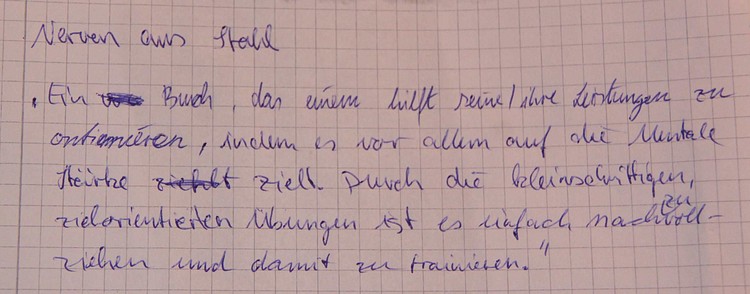 Nerven aus Stahl
„Ein Buch, das einem hilft seine/ihre Leistungen zu
optimieren, indem es vor allem auf die Mentale
Stärke zielt. Durch die kleinschrittigen,
zielorientierten Übungen ist es einfach nachzuvoll-
ziehen und damit zu trainieren."